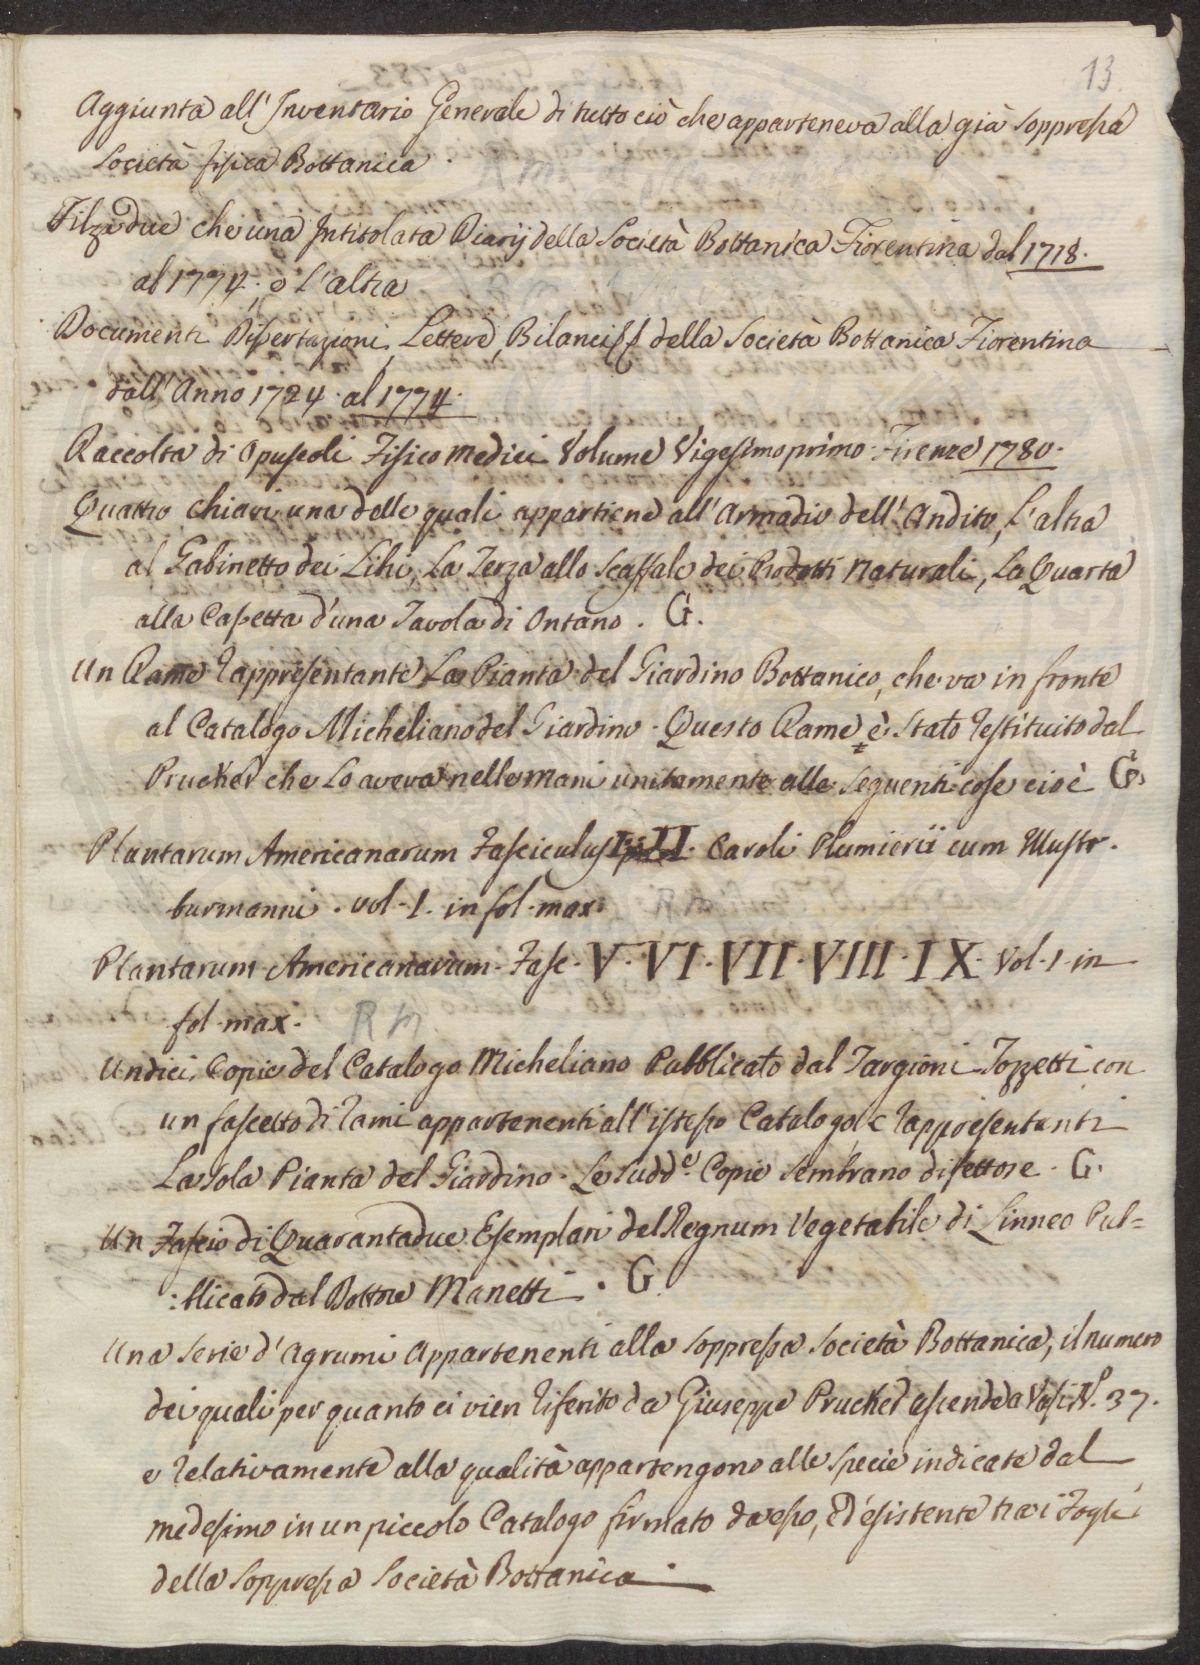 13.
Aggiunta all'Inventario Generale di tutto ciò che apparteneva alla già Soppressa
Società fisica Bottanica.
Filze due che una Intitolata Diarij della Società Bottanica Fiorentina dal 1718.
al 1774. e L'altra
Documenti Dissertazioni, Lettere, Bilanci della Società Bottanica Fiorentina
dall'Anno 1724. al 1774.
Raccolta di Opuscoli Fisico Medici Volume Vigesimoprimo. Firenze 1780.
Quattro chiavi una delle quali appartiene all'Armadio dell'Andito, L'altra
al Gabinetto dei Libri, La Terza allo Scaffale dei Prodotti Naturali, La Quarta
alla Cassetta d'una Tavola di Ontano. G.
Un Rame rappresentante La Pianta del Giardino Bottanico, che va in fronte
al Catalogo Micheliano del Giardino. Questo Rame è Stato restituito dal
Prucker che Lo aveva nelle mani unitamente alle seguenti cose cioè G.
Plantarum Americanarum Fasciculus I. II. Caroli Plumierii cum Illustr.
burmanni. vol. 1. in fol. max.
Plantarum Americanarum. Fasc. V. VI. VII. VIII. IX. Vol. 1 in
fol. max. R m
Undici Copie del Catalogo Micheliano Pubblicato dal Targioni Tozzetti con
un fascetto di rami appartenenti all'istesso Catalogo, e rappresentanti
La sola Pianta del Giardino. Le sudd.e Copie sembrano difettose. G.
Un Fascio di Quarantadue Esemplari del Regnum Vegetabile di Linneo Pub=
:blicato dal Dottore Manetti. G
Una Serie d'Agrumi Appartenenti alla Soppressa Società Bottanica, il numero
dei quali per quanto ci vien riferito da Giuseppe Prucker ascende a Vasi N.° 37.
e relativamente alla qualità appartengono alle Specie indicate dal
medesimo in un piccolo Catalogo firmato da esso, ed esistente tra i Fogli
della Soppressa Società Bottanica.